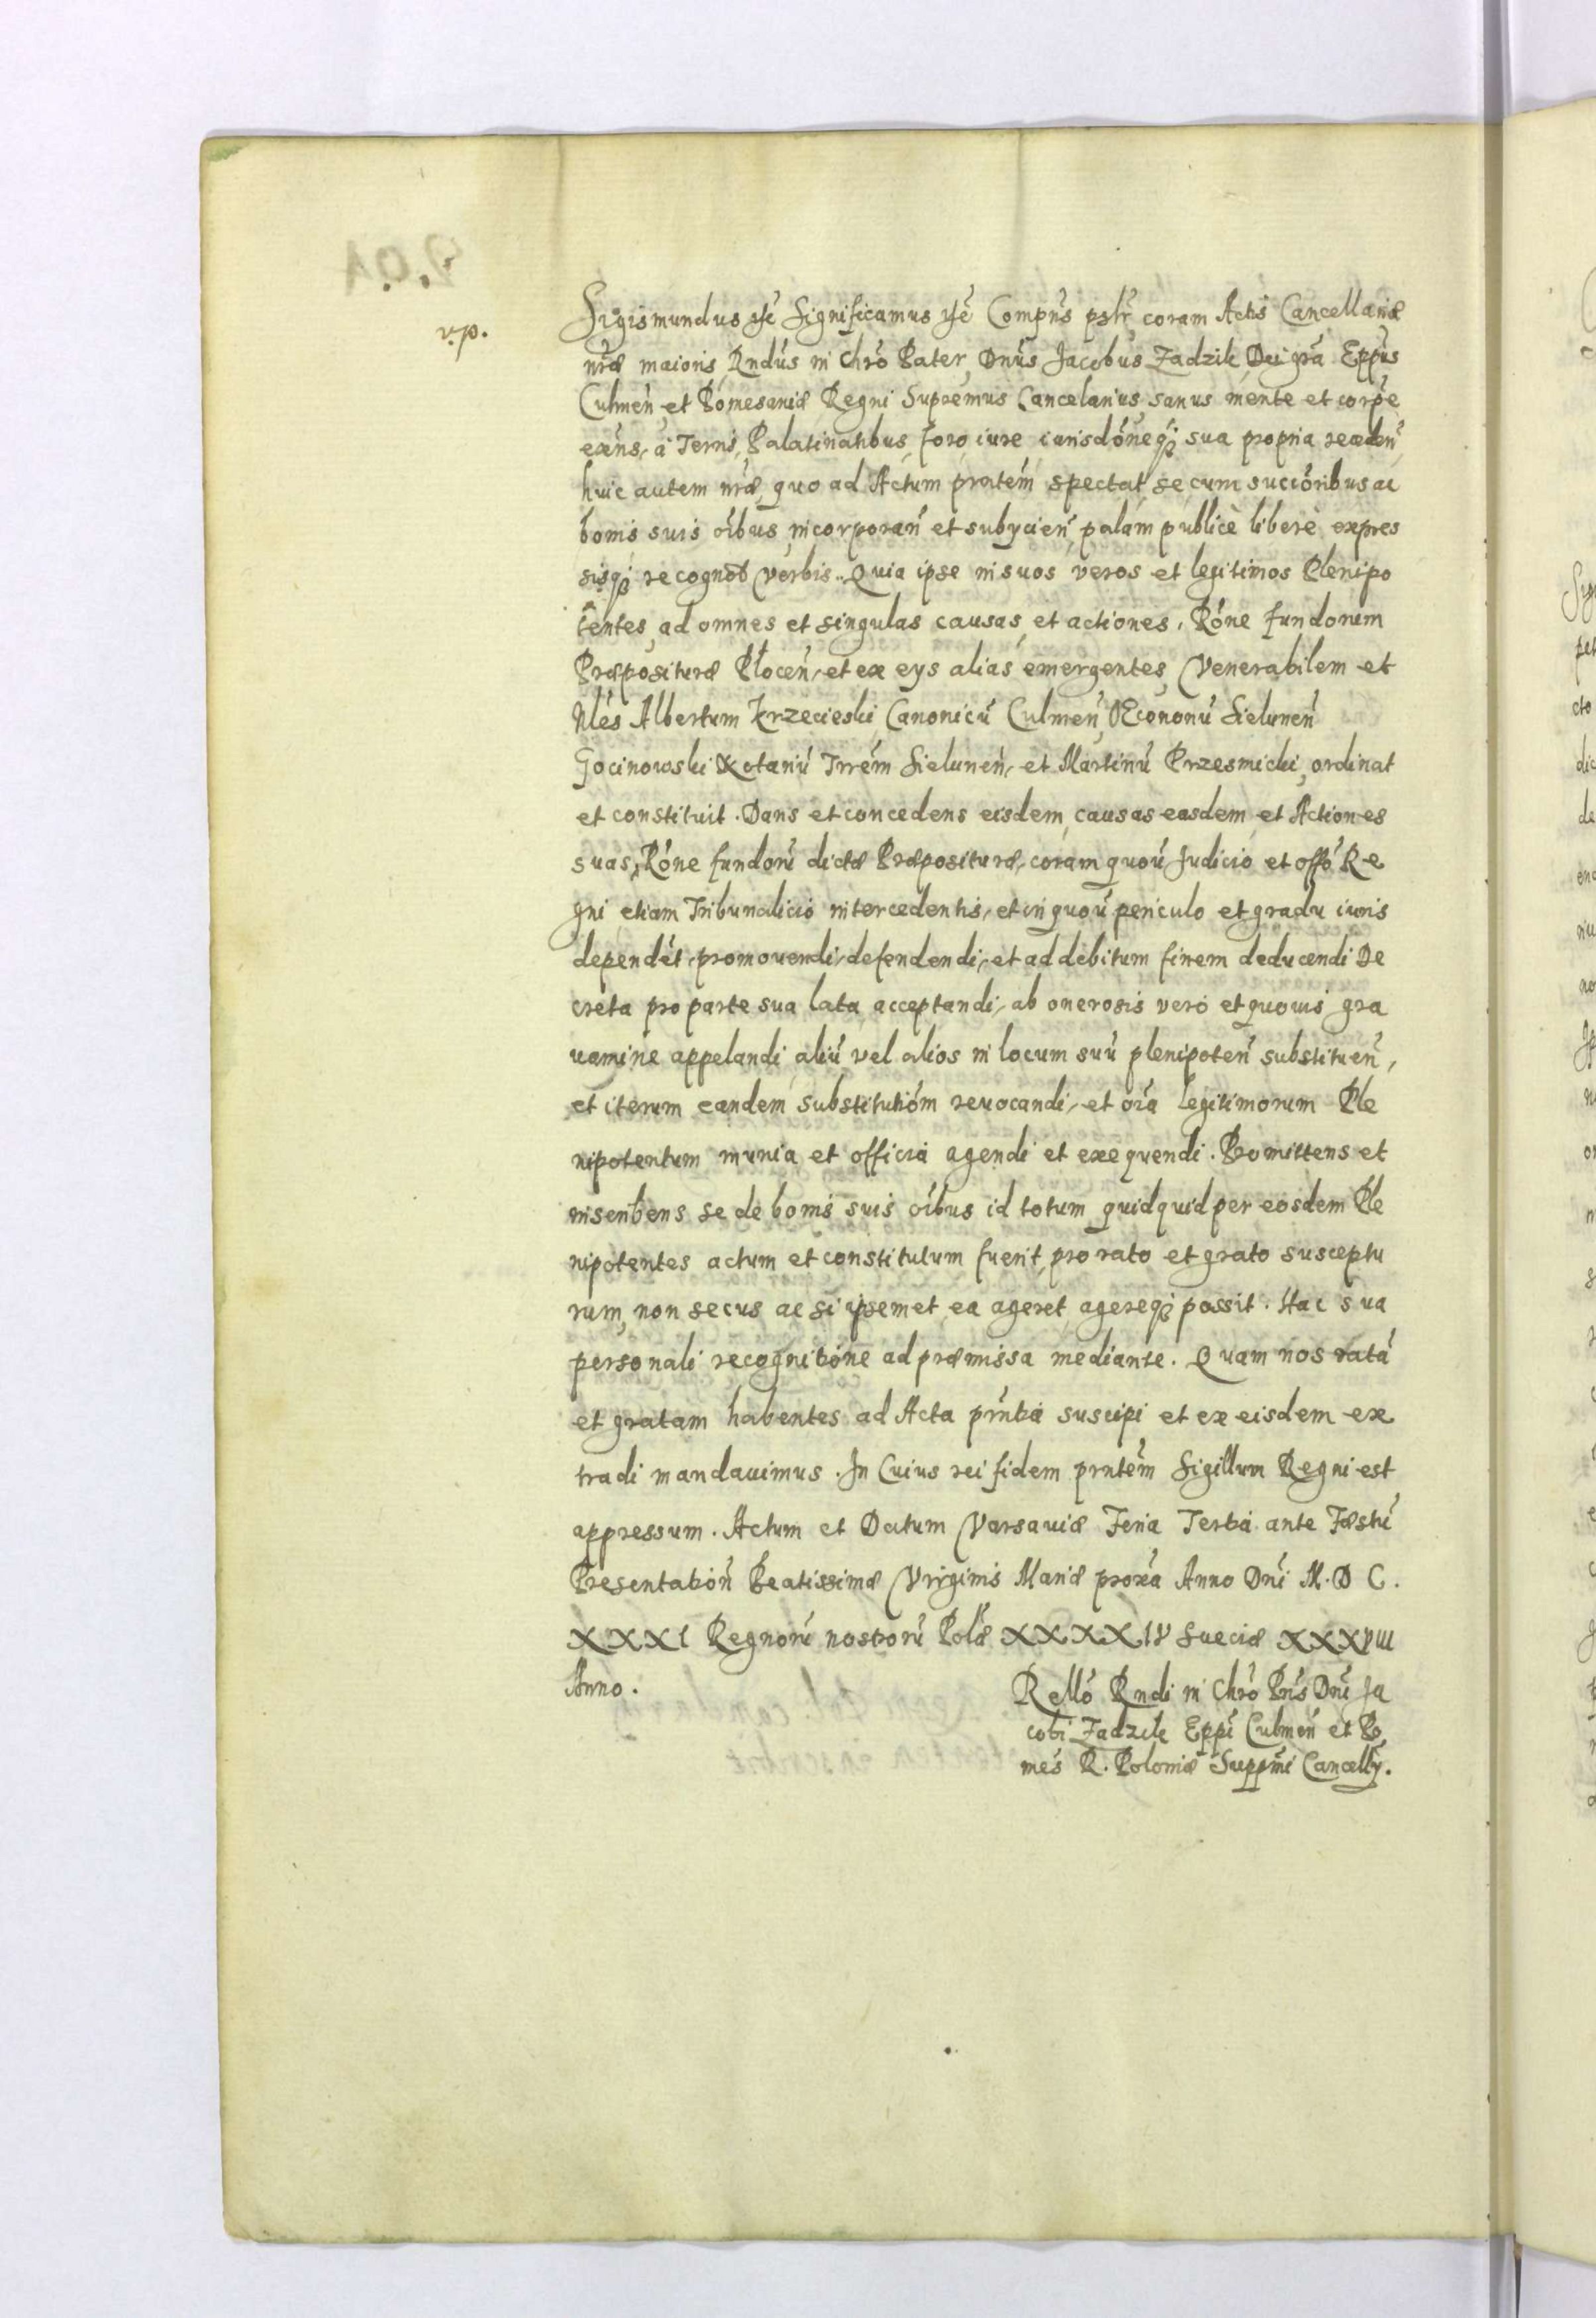 v.p.
Sigismundus etc̃ Significamus etc̃ Compñs pslr̃ coram Actis Cancellariæ
nr̃æ maioris, Rndũs in Chrõ Pater Dnũs Jacobus Zadzik Dei grã Epp̃us
Culmeñ et Pomesaniæ Regni Supremus Cancelarius, sanus mente et corpe
exñs, à Terris, Palatinatibus, foro, iure, iurisdõneq; sua propria receden̄
huic autem nr̃æ, quo ad Actum prñtem spectat, se cum succõribus ac
bonis suis oĩbus, incorporañ et subycień, palam publicè liberè expres
sisq; recognot verbis. Quia ipse in suos veros et legitimos Plenipo
tentes, ad omnes et singulas causas, et actiones, Rõne fundorum
Præposituræ Płoceñ, et ex eys alias emergentes, Venerabilem et
Nles Albertum Krzecieski Canonicũ Culmeñ, OEconomũ Sieluneñ
Gocinowski Notariũ Trrẽm Sieluneñ, et Martinũ Przesmicki, ordinat
et constituit. Dans et concedens eisdem, causas easdem, et Actiones
suas, Rõne fundorũ dictæ Præposituræ, coram quoũ Judicio et offõ Re
gni, etiam Tribunalicio intercedentis, et in quoũ periculo et gradu iuris
dependet, promouendi, defendendi, et ad debitum finem deducendi De
creta pro parte sua lata acceptandi, ab onerosis verò et quouis gra
uamine appelandi, aliũ vel alios in locum suũ plenipoteñ substitueñ,
et iterum eandem substitutiõm reuocandi, et oĩa legitimorum Ple
nipotentum munia et officia agendi et exequendi. Promittens et
inscribens se de bonis suis oĩbus id totum quidquid per eosdem Ple
nipotentes actum et constitutum fuerit, pro rato et grato susceptu
rum, non secus ac si ipsemet ea ageret, agereq; possit. Hac sua
personali recognitiõne ad præmissa mediante. Quam nos ratã
et gratam habentes ad Acta prñtia suscipi et ex eisdem ex
tradi mandauimus. In Cuius rei fidem prñtem Sigillum Regni est
appressum. Actum et Datum Varsauiæ Feria Tertia ante Fæstũ
Presentatioñ Beatissimæ Virginis Mariæ proxã Anno Dnĩ M.D C.
XXXI Regnorũ nostrorũ Polæ XXXXIV Sueciæ XXXVIII
Anno.
Rellõ Rndi in Chrõ Pris Dnĩ Ja
cobi Zadzik Epp̃i Culmeñ et Po
mes R. Poloniæ Supp̃mi Cancellỹ.